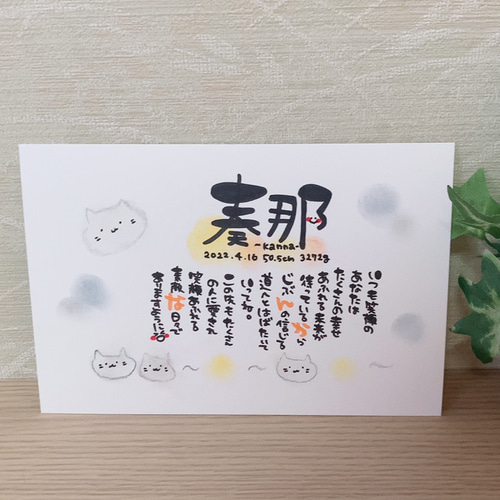 奏那
~kanna~
2022.4.16 50.5cm 3272g
いつも笑顔の
あなたは
たくさんの幸せ
あふれる未来が
待っているから
じぶんの信じる
道へとはばたいて
いってね。
この次もたくさん
の人に愛され
笑顔あふれる
素敵な日々で
ありますように